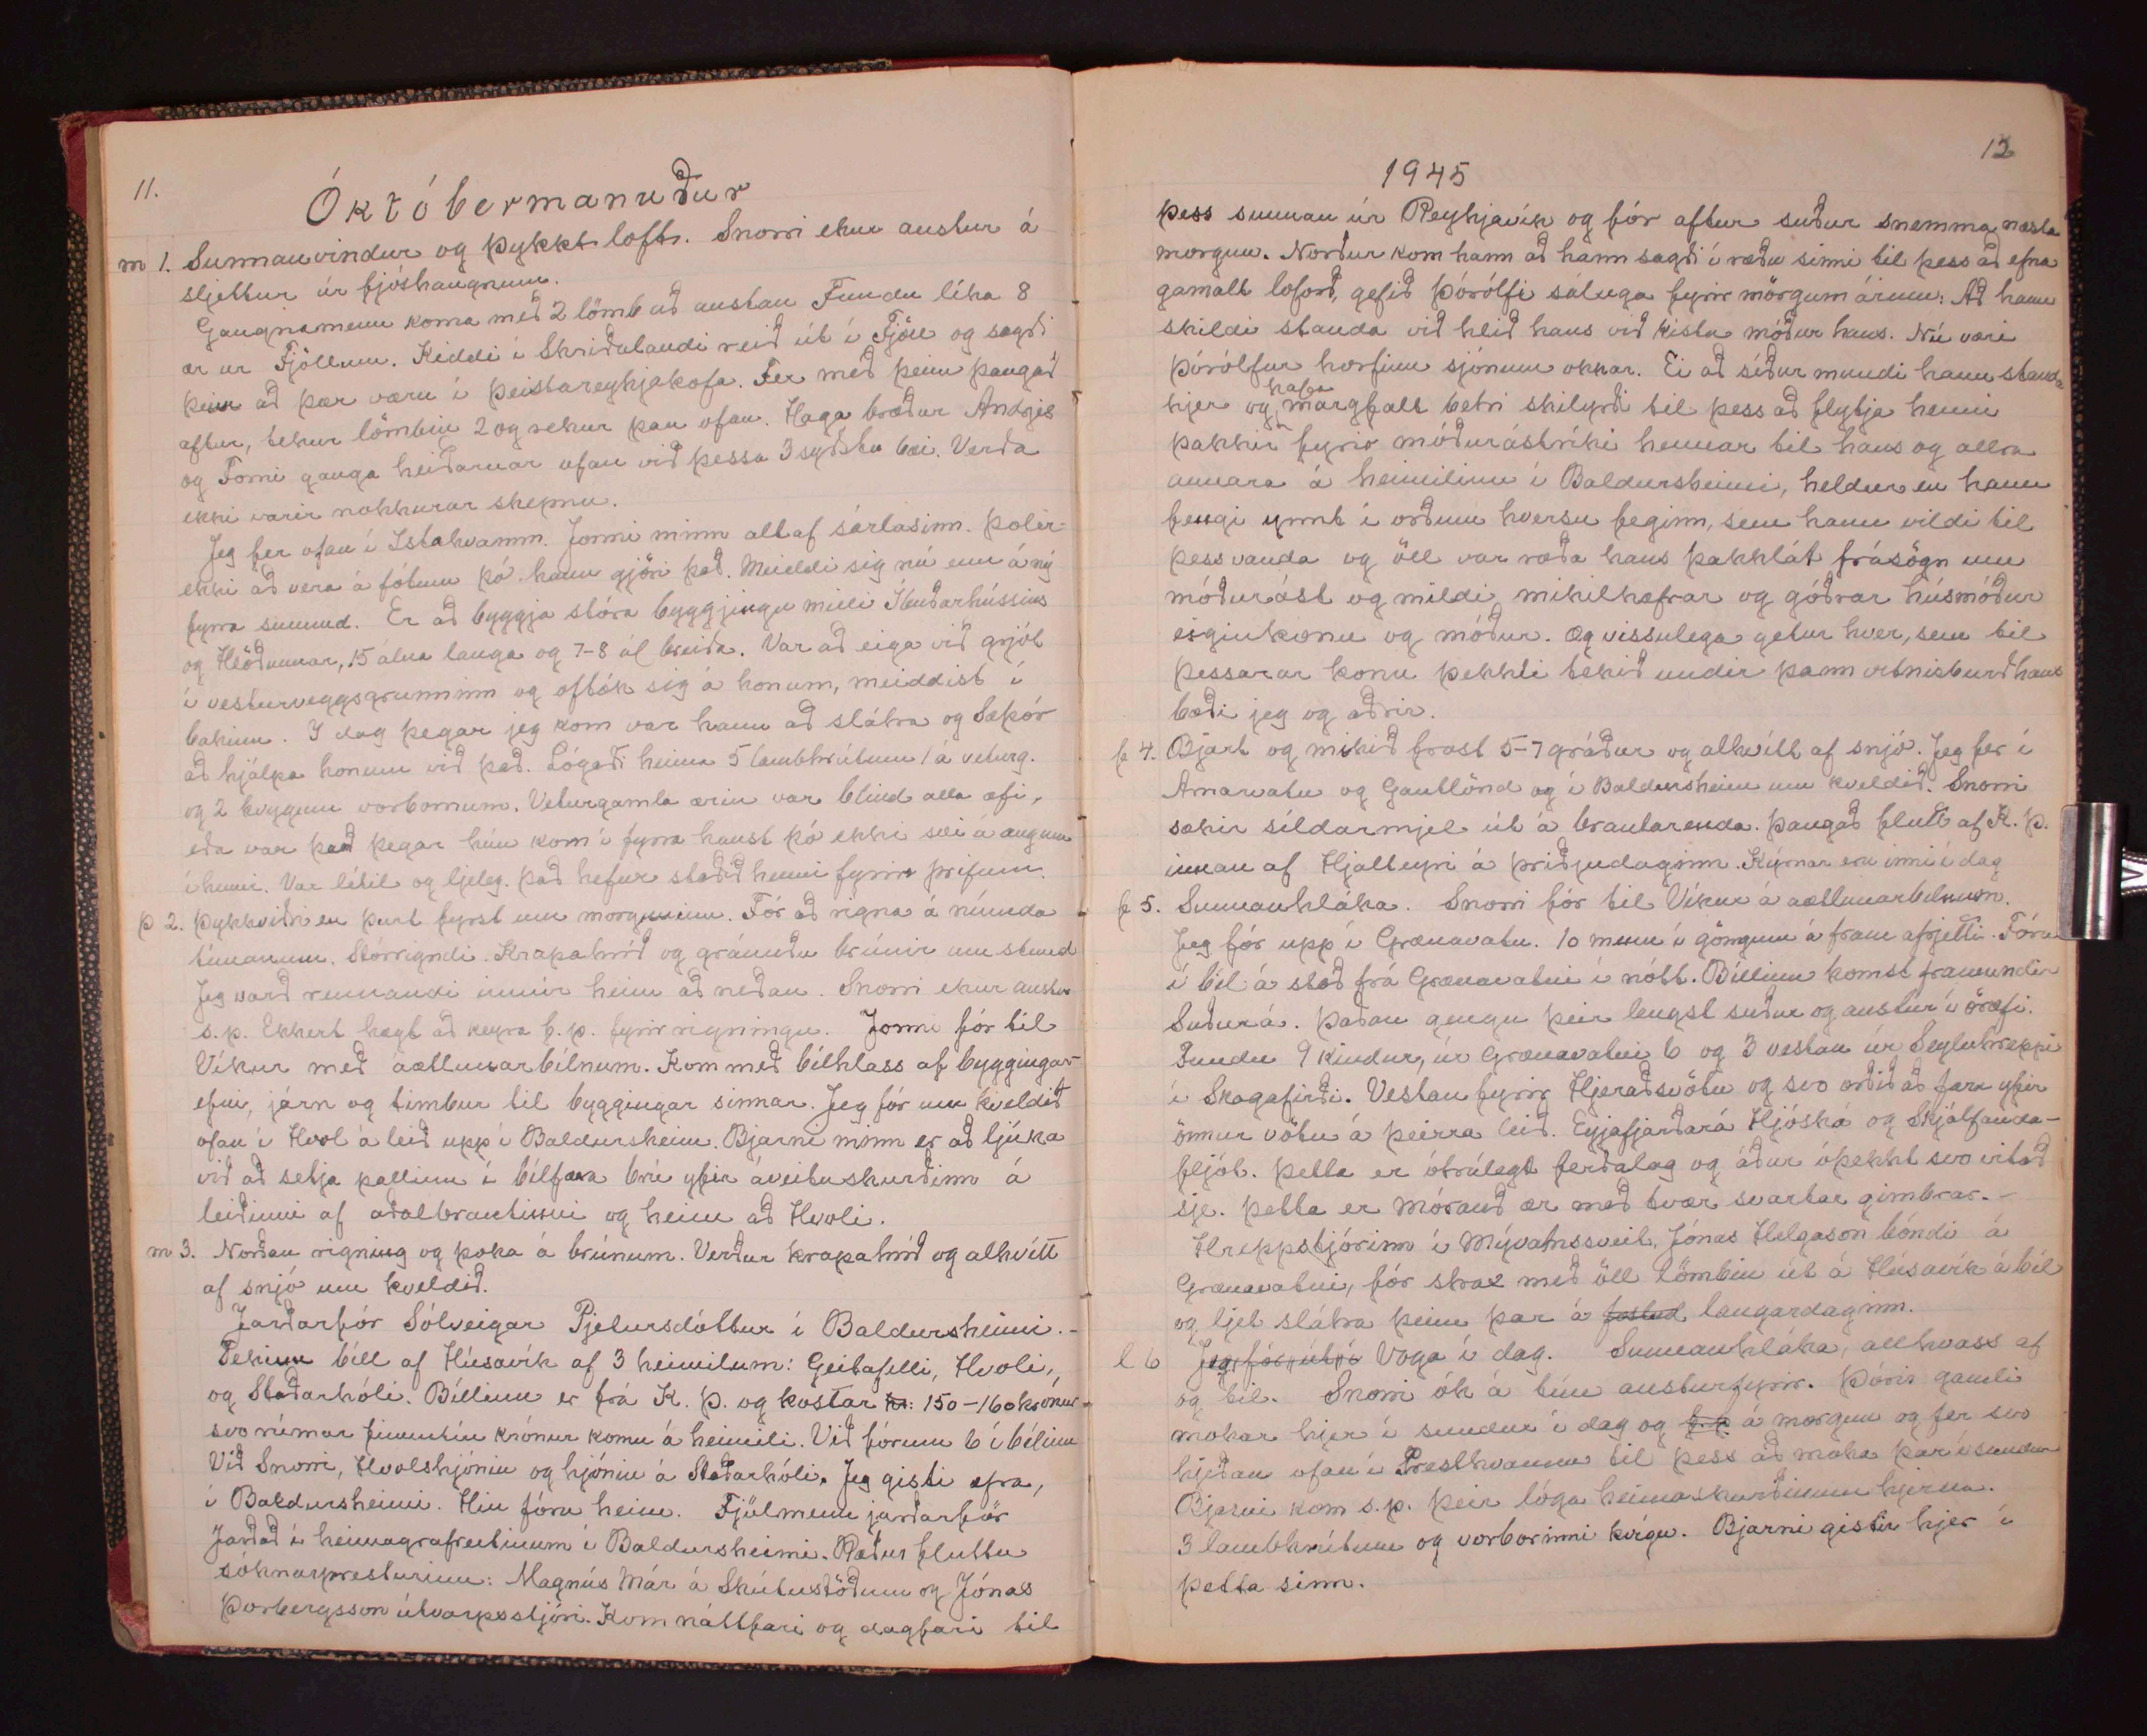 11.
Októbermánuður
m 1. Sunnanvindur og þykkt loft. Snorri ekur austur á
sljettur úr fjóshaugnum.
Gangnamenn koma með 2 lömb að austan Fundu líka 8
ær úr Fjöllum. Kiddi í Skriðulandi reið út í Fjöll og sagði
þeim að þær væru í Þeistareykjakofa. Fer með þeim þangað
aftur, tekur lömbin 2 og rekur þau ofan. Haga bræður Andrjes
og Forni ganga heiðarnar ofan við þessa 3 syðstu bæi. Verða
ekki varir nokkurar skepnu.
Jeg fer ofan í Ystahvamm. Jonni minn altaf sárlasinn. Þolir
ekki að vera á fótum þó hann gjöri það. Meiddi sig nú enn á ný
fyrra sunnud. Er að byggja stóra byggjingu milli Íbúðarhússins
og Hlöðunnar, 15 álna langa og 7-8 ál breiða. Var að eiga við grjót
í vesturveggsgrunninn og oftók sig á honum, meiddist í
bakinu. Í dag þegar jeg kom var hann að slátra og Sæþór
að hjálpa honum við það. Lógaði heima 5 lambhrútum 1 á veturg.
og 2 kvygum vorbornum. Veturgamla ærin var blind alla æfi,
eða var það þegar hún kom í fyrra haust þó ekki sæi á augum
í henni. Var lítil og ljeleg. Það hefur staðið henni fyrir þrifum.
þ 2. Þykkviðri en þurt fyrst um morguninn. Fór að rigna á níunda
tímanum. Stórrigndi. Krapahríð og gránuðu brúnir um stund
Jeg varð rennandi innúr heim að neðan. Snorri ekur austur
s.p. Ekkert hægt að keyra f.p. fyrir rigningu. Jonni fór til
Víkur með áætlunarbílnum. Kom með bílhlass af byggingar-
efni, járn og timbur til byggingar sinnar. Jeg fór um kveldið
ofan í Hvol á leið upp í Baldursheim. Bjarni minn er að ljúka
við að setja pallinn í bílfæra brú yfir áveituskurðinn á
leiðinni af aðalbrautinni og heim að Hvoli.
m 3. Norðan rigning og þoka á brúnum. Verður krapahríð og alhvítt
af snjó um kveldið.
Jarðarför Sólveigar Pjetursdóttur í Baldursheimi.-
Tekinn bíll af Húsavík af 3 heimilum: Geitafelli, Hvoli,
og Staðarhóli. Bíllinn er frá K. Þ. og kostar kr: 150-160 krónur
svo rúmar fimmtíu krónur komu á heimili. Við fórum 6 í bílinn
Við Snorri, Hvolshjónin og hjónin á Staðarhóli. Jeg gisti efra,
í Baldursheimi. Hin fóru heim. Fjölmenn jarðarför
Jarðað í heimagrafreitinum í Baldursheimi. Ræður fluttu
sóknarpresturinn: Magnús Már á Skútustöðum og Jónas
Þorbergsson útvarpsstjóri. Kom náttfari og dagfari til
12
1945
þess sunnan úr Reykjavík og fór aftur suður snemma næsta
morgun. Norður kom hann að hann sagði í ræðu sinni til þess að efna
gamalt loforð, gefið Þórólfi sáluga fyrir mörgum árum: Að hann
skildi standa við hlið hans við kistu móður hans. Nú væri
Þórólfur horfinn sjónum okkar. Ei að síður mundi hann standa
hjer og hafa margfalt betri skilyrði til þess að flytja henni
þakkir fyrir móðurástríki hennar til hans og allra
annara á heimilinu í Baldursheimi, heldur en hann
fengi ynnt í orðum hversu feginn, sem hann vildi til
þess vanda og öll var ræða hans þakklát frásögn um
móðurást og mildi mikilhæfrar og góðrar húsmóður
eiginkonu og móður. Og vissulega getur hver, sem til
þessarar konu þekkti tekið undir þann vitnisburð hans
bæði jeg og aðrir.
f 4. Bjart og mikið frost 5-7 gráður og alhvítt af snjó. Jeg fer í
Arnarvatn og Gautlönd og í Baldursheim um kveldið. Snorri
sækir síldarmjel út á brautarenda. Þangað flutt af K. Þ.
innan af Hjalteyri á þriðjudaginn. Kýrnar eru inni í dag
f 5. Sunnanhláka. Snorri fór til Víkur á áætlunarbílnum.
Jeg fór upp í Grænavatn. 10 menn í göngum á fram afrjetti. Fóru
í bíl á stað frá Grænavatni í nótt. Bíllinn komst framundir
Suðurá. Þaðan gengu þeir lengst suður og austur í öræfi.
Fundu 9 kindur, úr Grænavatni 6 og 3 vestan úr Seyluhreppi
í Skagafirði. Vestan fyrir Hjeraðsvötn og svo orðið að fara yfir
önnur vötn á þeirra leið. Eyjafjarðará Hjóská og Skjálfanda-
fljót. Þetta er ótrúlegt ferðalag og áður óþekkt svo vitað
sje. Þetta er mórauð ær með tvær svartar gimbrar.-
Hreppstjórinn í Mývatnssveit, Jónas Helgason bóndi á
Grænavatni, fór strax með öll lömbin út á Húsavík á bíl
og ljet slátra þeim þar á föstud laugardaginn.
l 6 Jeg fór út í Voga í dag. Sunnanhláka, allhvass af
og til. Snorri ók á tún austurfyrir. Þórir gamli
mokar hjer í sundur í dag og f.p á morgun og fer svo
hjeðan ofan í Presthvamm til þess að moka þar í sundur
Bjarni kom s.p. Þeir lóga heimaskurðinum hjerna.
3 lambhrútum og vorborinni kvígu. Bjarni gistir hjer í
þetta sinn.